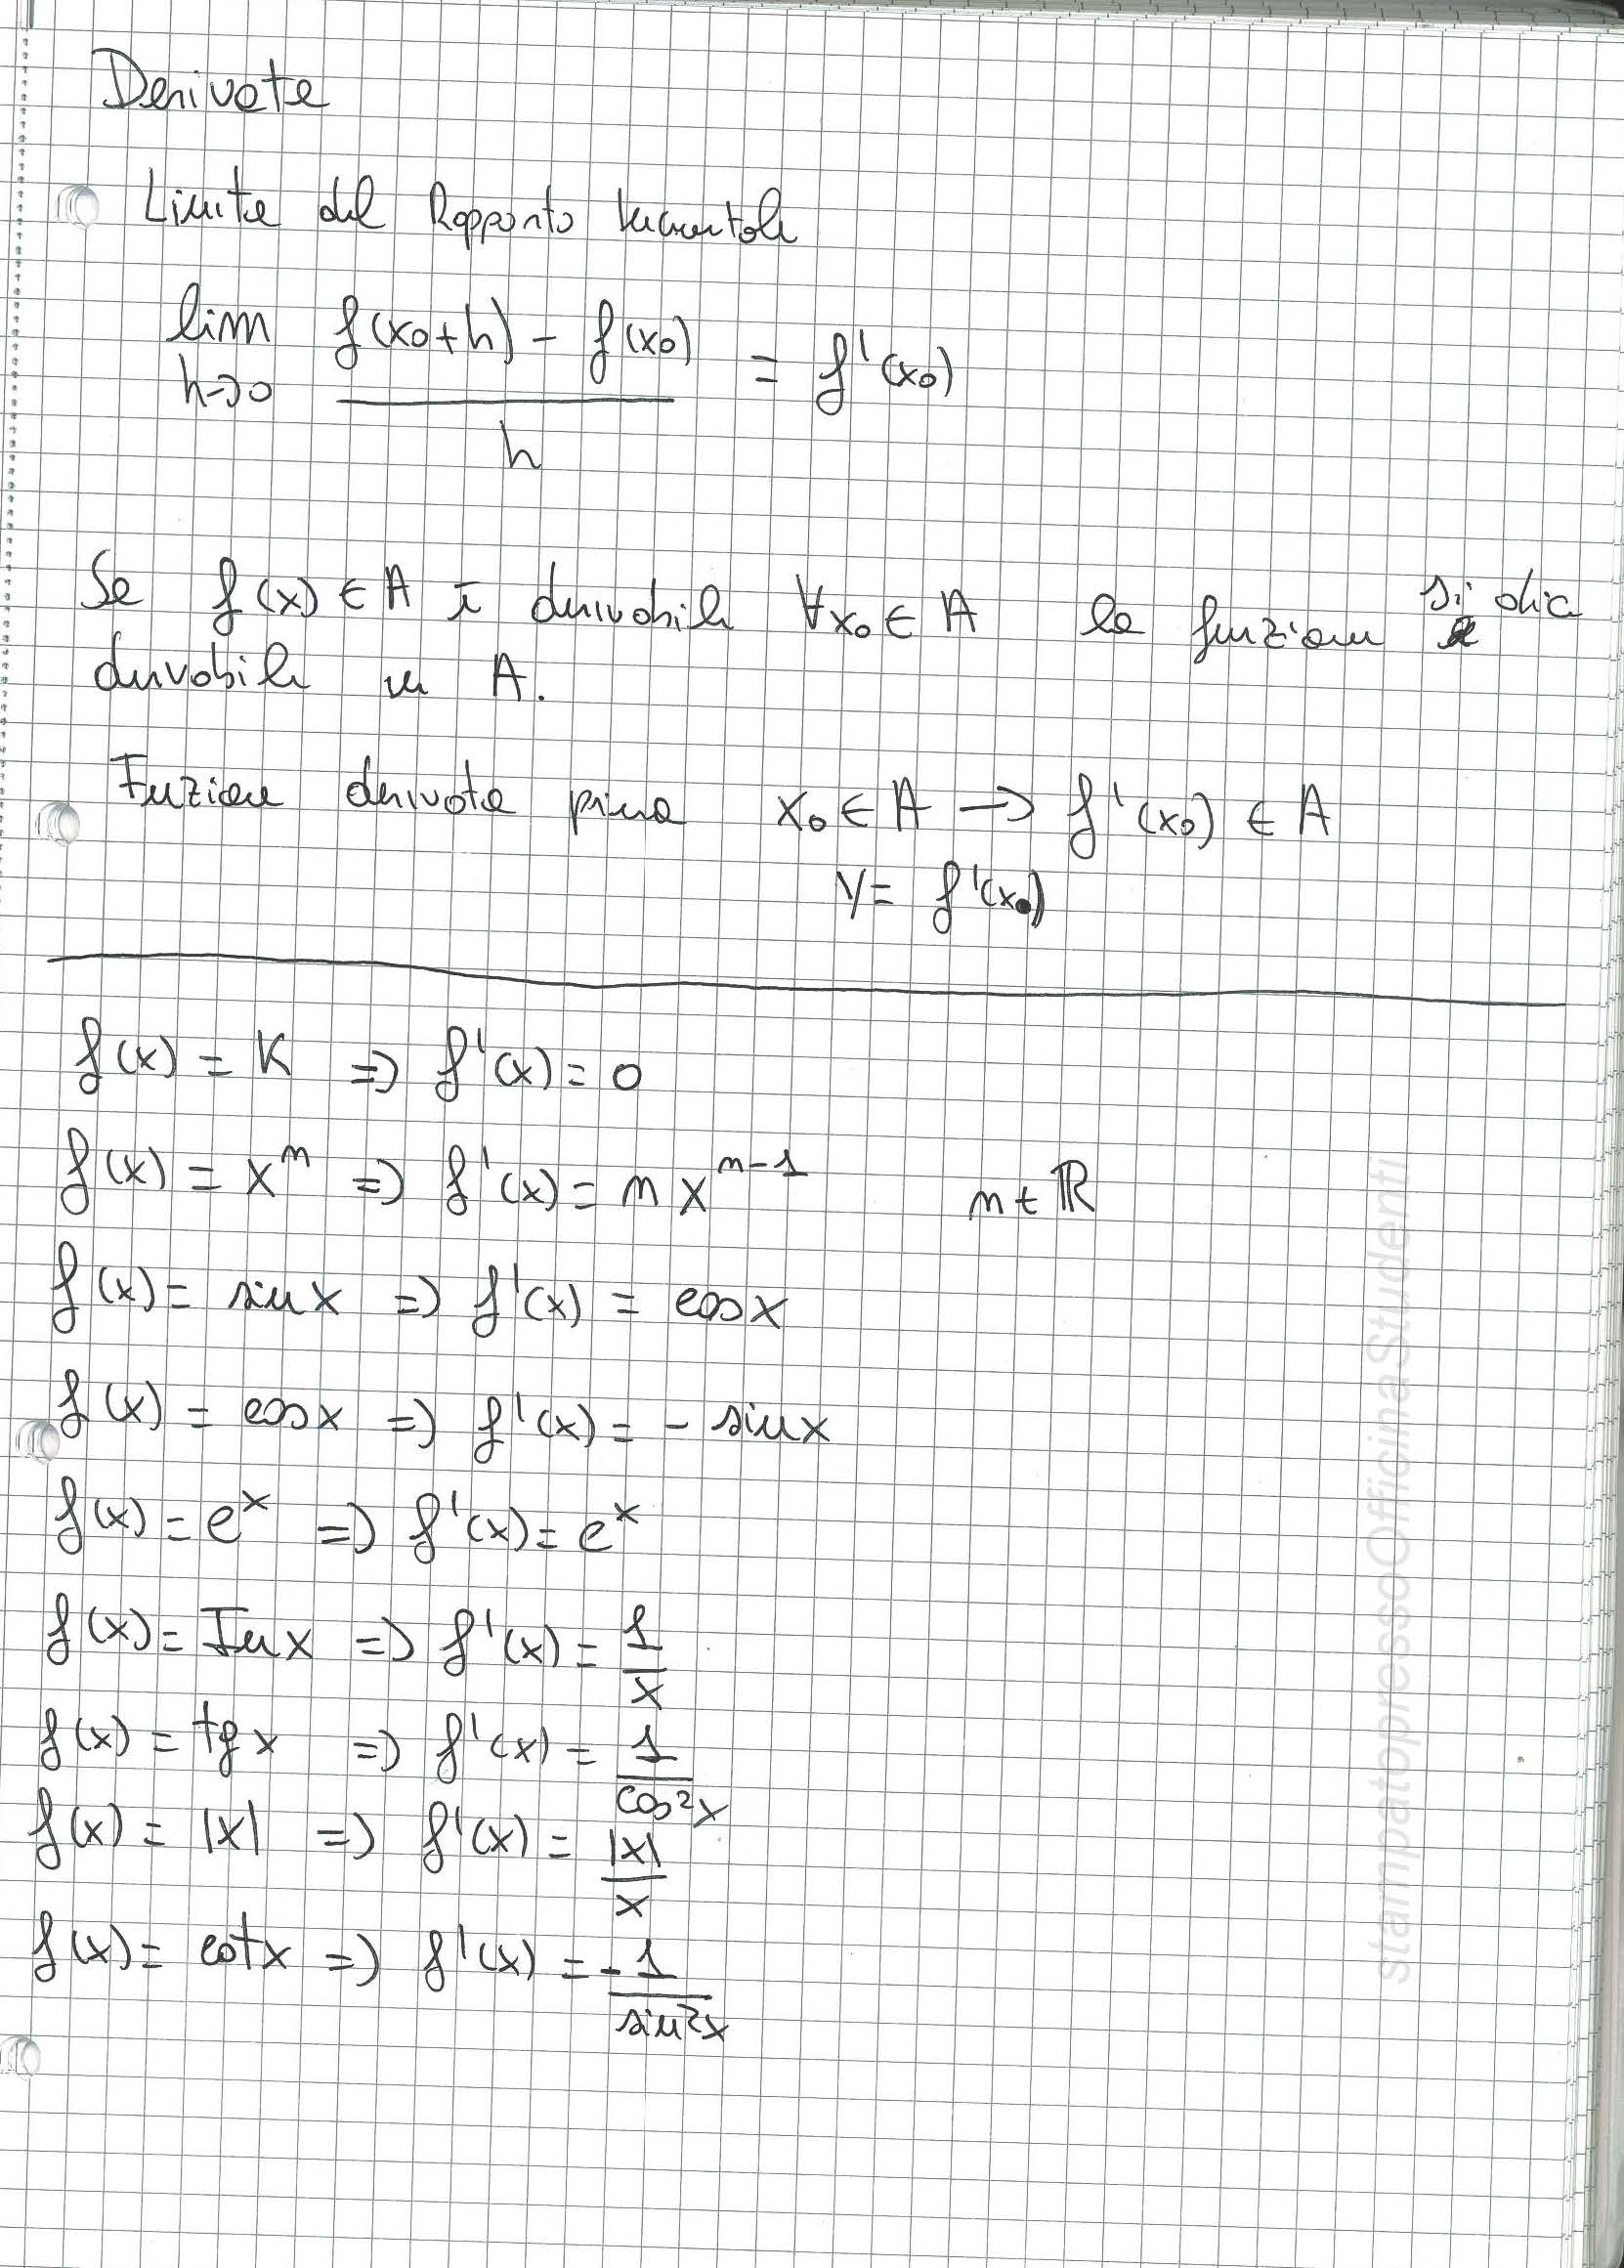 Derivate
Limite del Rapporto Incrementale
lim f(x0+h) - f(x0) = f'(x0)
h→0 h
Se f(x) ∈ A è derivabile ∀x0 ∈ A la funzione si dice
derivabile in A.
Funzione derivata prima x0 ∈ A → f'(x0) ∈ A
y = f'(x0)
f(x) = K => f'(x) = 0
f(x) = x^n => f'(x) = n x^(n-1) n ∈ ℝ
f(x) = sin x => f'(x) = cos x
f(x) = cos x => f'(x) = - sin x
f(x) = e^x => f'(x) = e^x
f(x) = ln x => f'(x) = 1/x
f(x) = tg x => f'(x) = 1/cos²x
f(x) = |x| => f'(x) = |x|/x
f(x) = cot x => f'(x) = -1/sin²x
stampatopressoOfficinaStudenti